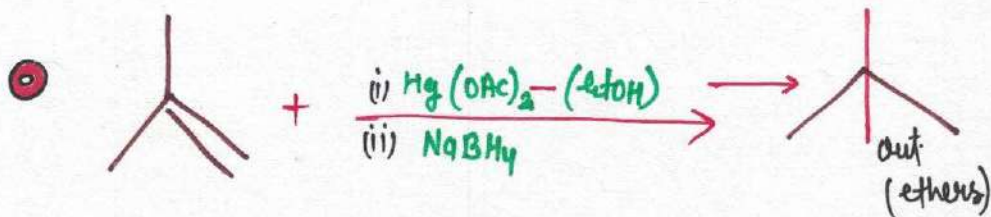 (i) Hg (OAC)₂ – (EtOH)
(ii) NaBH₄
out
(ethers)